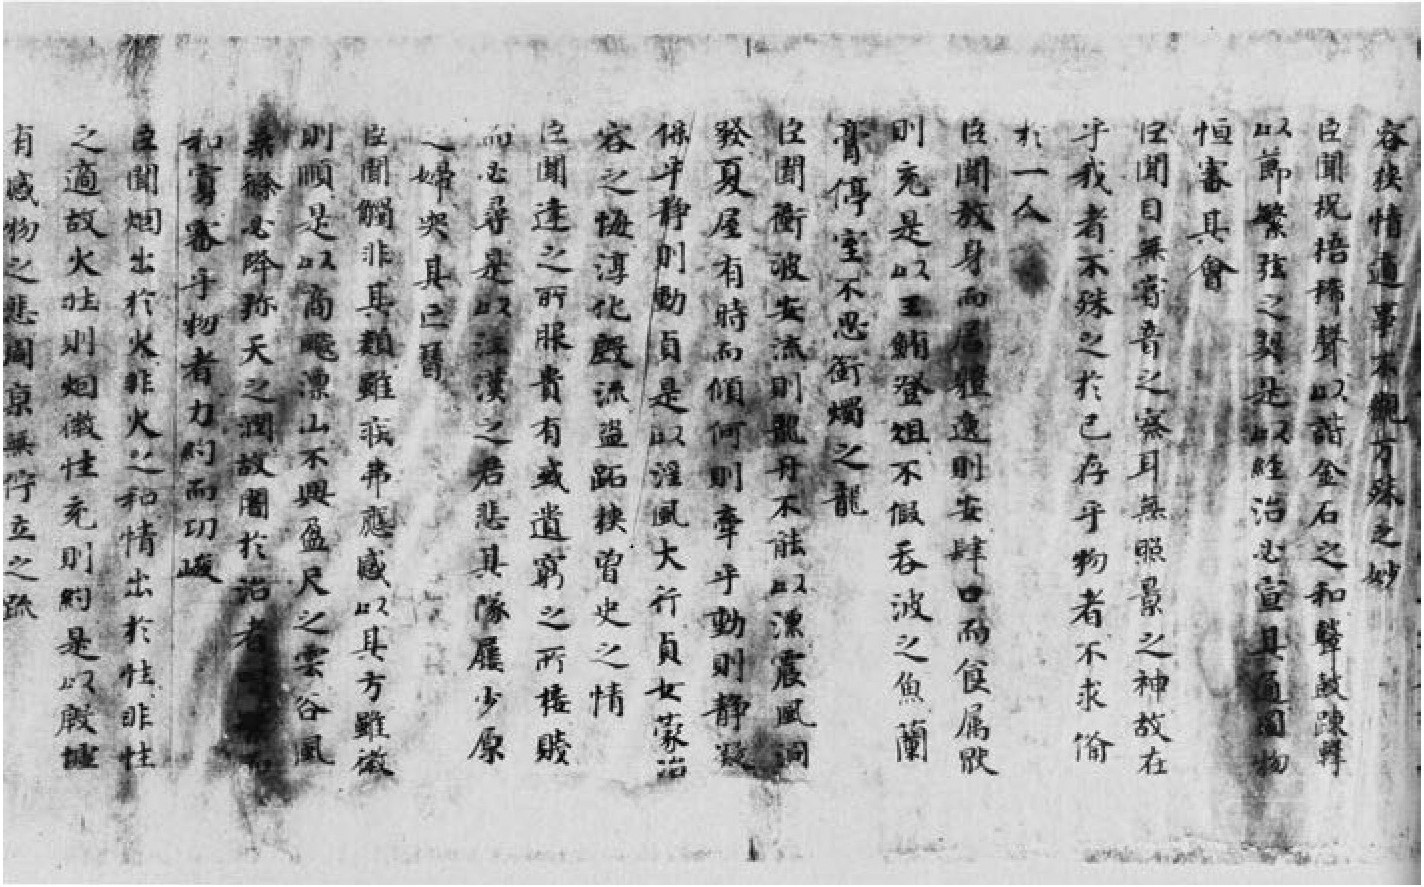 容挾情適事不觀万殊之妙
臣聞柷梧稀聲以諧金石之和鼙皷踈擊
以節繁弦之契是以經治必宣其通圖物
恒審其會
臣聞目無嘗音之察耳無照景之神故在
乎我者不殊之於己存乎物者不求俻
於一人
臣聞放身而居體逸則安肆口而食属猒
則充是以王鮪登俎不假吞波之魚蘭
膏停室不思銜燭之龍
臣聞衝波安流則龍舟不能以漂震風洞
發夏屋有時而傾何則牽乎動則静凝
係乎静則動貞是以淫風大行貞女蒙治
容之悔淳化殷流盗跖挾曾史之情
臣聞達之所服貴有或遺窮之所接賤
而必尋是以江漢之君悲其隊屨少原
之婦哭其亡簪
臣聞觸非其類雖疾弗應感以其方雖微
則順是以商飈漂山不興盈尺之雲谷風
乘條必降弥天之潤故闇於治者而
和寡審乎物者力約而功峻
臣聞烟出於火非火之和情出於性非性
之適故火壮則烟微性充則約是以殷墟
有感物之悲周京無佇立之跡